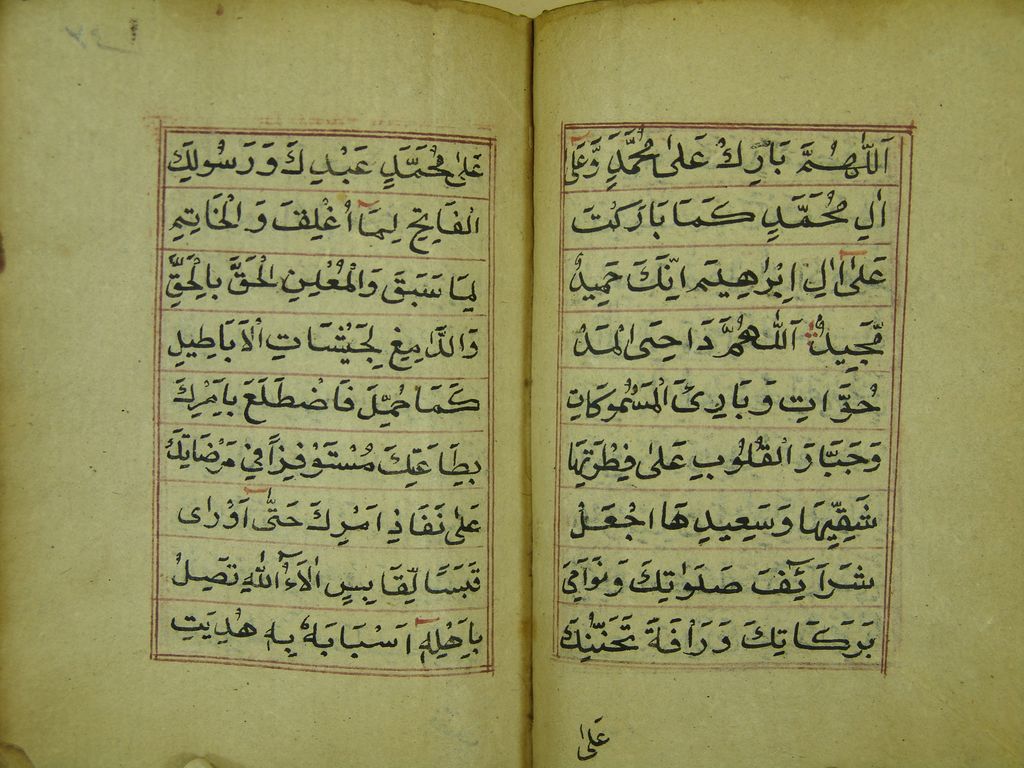 اَللّٰهُمَّ بَارِكْ عَلىٰ مُحَمَّدٍ وَّعَلىٰ
اٰلِ مُحَمَّدٍ كَمَا بَارَكْتَ
عَلىٰ اٰلِ اِبْرٰهِيْمَ اِنَّكَ حَمِيْدٌ
مَّجِيْدٌ اَللّٰهُمَّ دَاحِىَ الْمَدْ
حُوَّاتِ وَبَارِئَ الْمَسْمُوكَاتِ
وَجَبَّارَ الْقُلُوبِ عَلىٰ فِطْرَتِهَا
شَقِيِّهَا وَسَعِيدِهَا اجْعَلْ
شَرَائِفَ صَلَوٰاتِكَ وَنَوَامِىَ
بَرَكَاتِكَ وَرَافَةَ تَحَنُّنِكَ
عَلىٰ
عَلىٰ مُحَمَّدٍ عَبْدِكَ وَرَسُولِكَ
الْفَاتِحِ لِمَا اُغْلِقَ وَالْخَاتِمِ
لِمَا سَبَقَ وَالْمُعْلِنِ الْحَقَّ بِالْحَقِّ
وَالدَّامِغِ لِجَيْشَاتِ الْاَبَاطِيلِ
كَمَا حُمِّلَ فَاضْطَلَعَ بِاَمْرِكَ
بِطَاعَتِكَ مُسْتَوْفِزًا فِي مَرْضَاتِكَ
عَلىٰ نَفَاذِ اَمْرِكَ حَتّٰى اَوْرٰى
قَبَسًا لِّقَابِسٍ اٰلَاءُ اللّٰهِ تَصِلُ
بِاَهْلِهٖ اَسْبَابَهٗ بِهٖ هُدِيَتِ